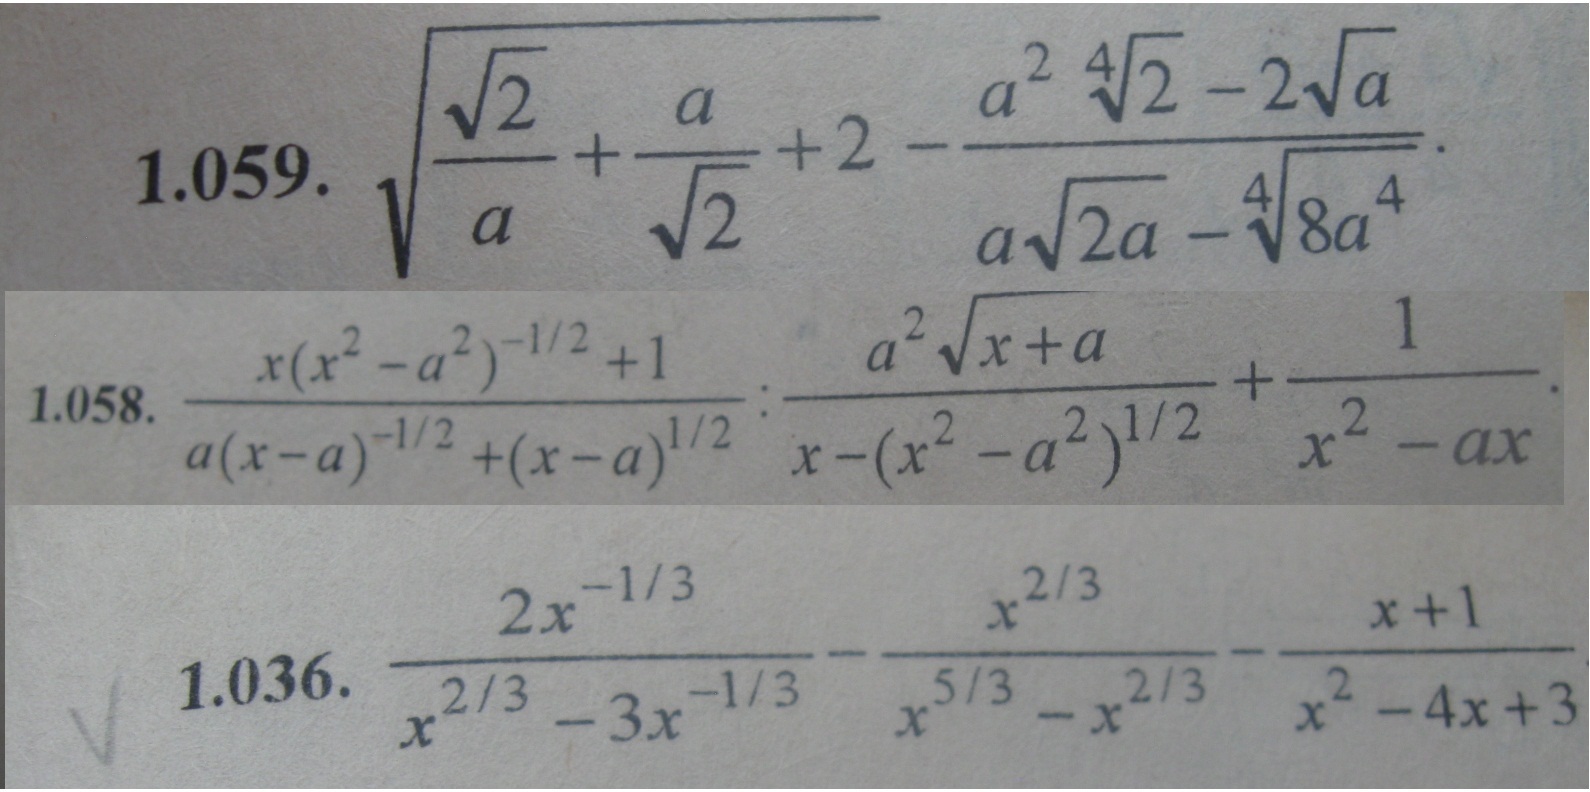 1.059. \sqrt{\frac{\sqrt{2}}{a} + \frac{a}{\sqrt{2}} + 2} - \frac{a^2 \sqrt[4]{2} - 2\sqrt{a}}{a\sqrt{2a} - \sqrt[4]{8a^4}}.
1.058. \frac{x(x^2 - a^2)^{-1/2} + 1}{a(x - a)^{-1/2} + (x - a)^{1/2}} : \frac{a^2 \sqrt{x + a}}{x - (x^2 - a^2)^{1/2}} + \frac{1}{x^2 - ax}.
1.036. \frac{2x^{-1/3}}{x^{2/3} - 3x^{-1/3}} - \frac{x^{2/3}}{x^{5/3} - x^{2/3}} - \frac{x + 1}{x^2 - 4x + 3}.